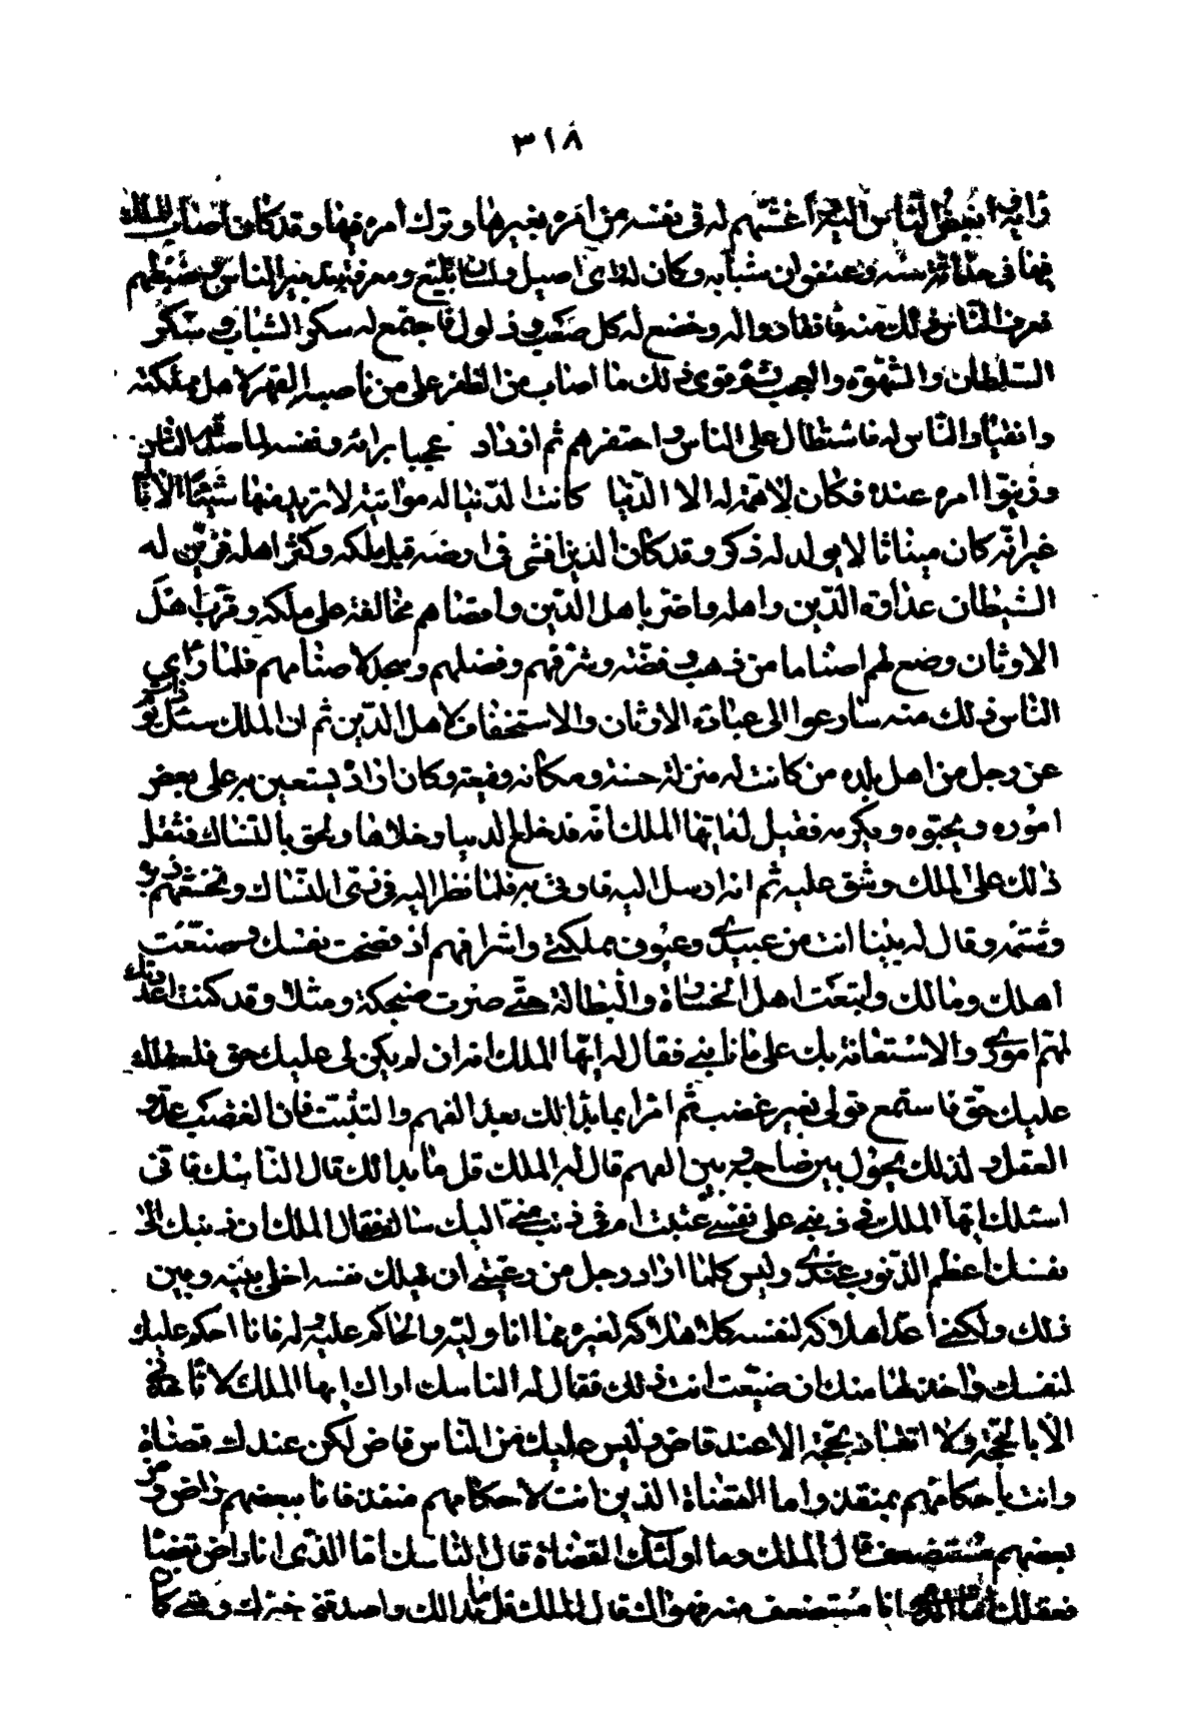 ٣١٨
رأيه أبغض الناس إليه أغشهم له في نفسه من أمره بغيرها وترك أمره فيها وقد كان أصاب الملك
فيها في حداثة سنه وعنفوان شبابه وكان له رأى أصيل ولسان بليغ ومعرفة بتدبير الناس وضبطهم
فعرف الناس ذلك منه فانقادوا له وخضع له كل صعب وذلول فاجتمع له سكر الشباب وسكر
السلطان والشهوة والعجب ثم قوى ذلك ما اصاب من الظفر على من ناصبه والقهر لاهل مملكته
وانقياد الناس له فاستطال على الناس واحتقرهم ثم ازداد عجبا برائه ونفسه لما مدحه الناس
وزينوا امره عنده فكان لا همة له الا الدنيا كانت الدنيا له مواتية لا يريد منها شيئا الا ناله
غير انه كان ميناثا لا يولد له ذكر وقد كان الدين افشى في ارضه قبل ملكه وكثر اهله فزين له
الشيطان عداوة الدين واهله واضر باهل الدين واقصاهم مخافة على ملكه وقرب اهل
الاوثان وضع لهم اصناما من ذهب وفضة وشرفهم وفضلهم وسجد لاصنامهم فلما رأى
الناس ذلك منه سارعوا الى عبادة الاوثان والاستخفاف لاهل الدين ثم ان الملك سئل يوما
عن رجل من اهل بلده من كانت له منزلة حسنة ومكانة رفيعة وكان اراد يستعين به على بعض
اموره ويحبوه ويكرمه فقيل له ايها الملك انه قد خلع الدنيا وخلاها ولحق بالنساك فثقل
ذلك على الملك وشق عليه ثم انه ارسل اليه فاوتى به فلما نظر اليه في زى النساك وتخشعهم زبره
وشتمه وقال له بينا انت من عبيدي وعيون مملكتي واشرافهم اذ فضحت نفسك وضيعت
اهلك ومالك واتبعت اهل الخسارة والبطالة حتى صرت ضحكة ومثلا وقد كنت اعددتك
لمهم اموري والاستعانة بك على ما نابني فقال له ايها الملك انه ان لم يكن لي عليك حق فلعقلك
عليك حق فاستمع قولي بغير غضب ثم ائمر بما بدا لك بعد الفهم والتثبت فان الغضب عدو
العقل ولذلك يحول بين صاحبه وبين الفهم قال له الملك قل ما بدا لك قال الناسك فاني
اسئلك ايها الملك في ذنبي على نفسي عتبت ام في ذنب مني اليك سالف فقال الملك ان ذنبك الى
نفسك اعظم الذنوب عندي وليس كلما اراد رجل من رعيتي ان يهلك نفسه اخلي بينه وبين
ذلك ولكني اعد اهلاكه لنفسه كاهلاكه لغيره مما انا وليه والحاكم عليه وله فانا احكم عليك
لنفسك واخذ لها منك ان ضيعت انت ذلك فقال له الناسك اراك ايها الملك لا تاخذني
الا بالحجة ولا انفاذ بحجة الا عند قاض وليس عليك من الناس قاض لكن عندك قضاة
وانت باحكامهم بمنفذ واما القضاة الذين انت لاحكامهم منفذ فانا ببعضهم راض ومن
بعضهم مستضعف قال الملك وما اولئك القضاة قال الناسك اما الذي انا راض بقضا
فعقلك اما الذي انا مستضعف منه فهواك قال الملك قل ما بدا لك واصدقني خبرك ومتى كا